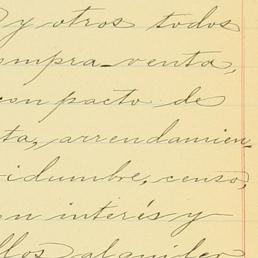 y otros todos
ompra-venta,
con pacto de
ta, arrendamien-
idumbre, censo,
n interés y
llos alquiler